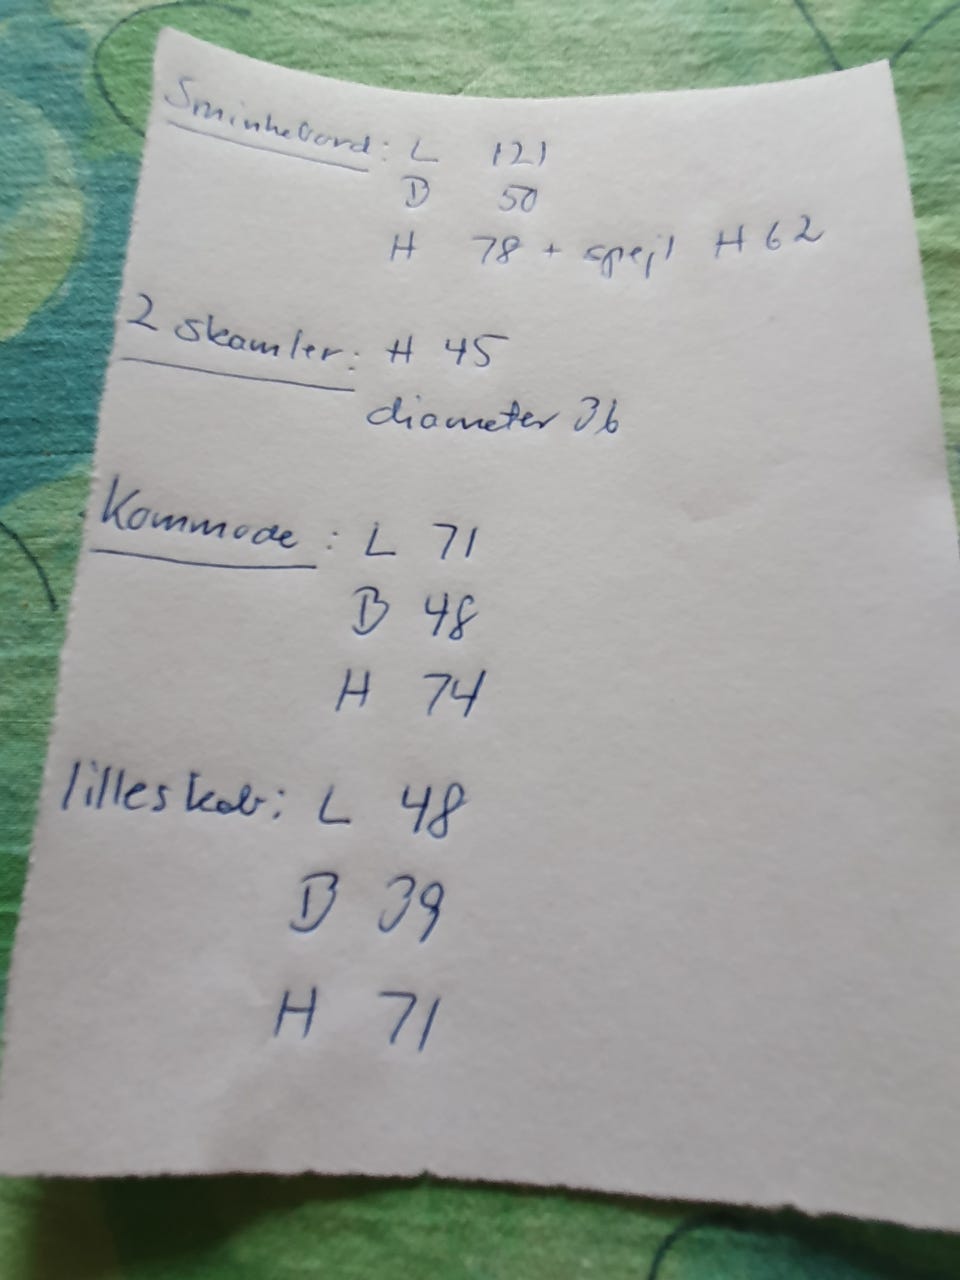 Sminkebord: L 121
B 50
H 78 + spejl H 62
2 skamler: H 45
diameter 36
Kommode: L 71
B 48
H 74
lilleskab: L 48
B 39
H 71